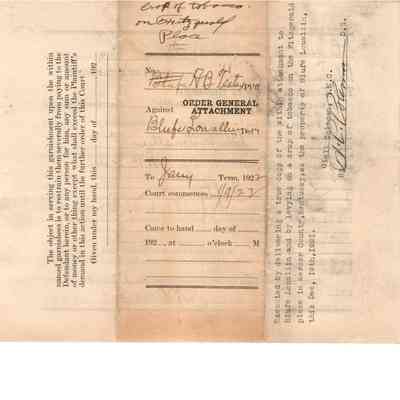 Crop of tobacco
on Fitzgerald
Place
No.
H C Testy
Against
ORDER GENERAL
ATTACHMENT
Blufe
To Jany Term, 1922
Court commences 1/9/22
Came to hand ...... day of
192... at ........ o'clock .... M
The object in serving this garnishment upon the within
named garnishees is to restrain them severally from paying to the
Defendant herein, or to any person for him, any sum or amount
of money or other thing except what shall exceed the Plaintiff's
demand in this action until the further order of this Court
Given under my hand, this day of 192
Executed by delivering a true copy of the within attachment to
Blufe and by levying on a crop of tobacco on the Fitzgerald
place in Mercer County, Kentucky, as the property of Blufe
this Dec, 19th, 1921.
By
D.S.